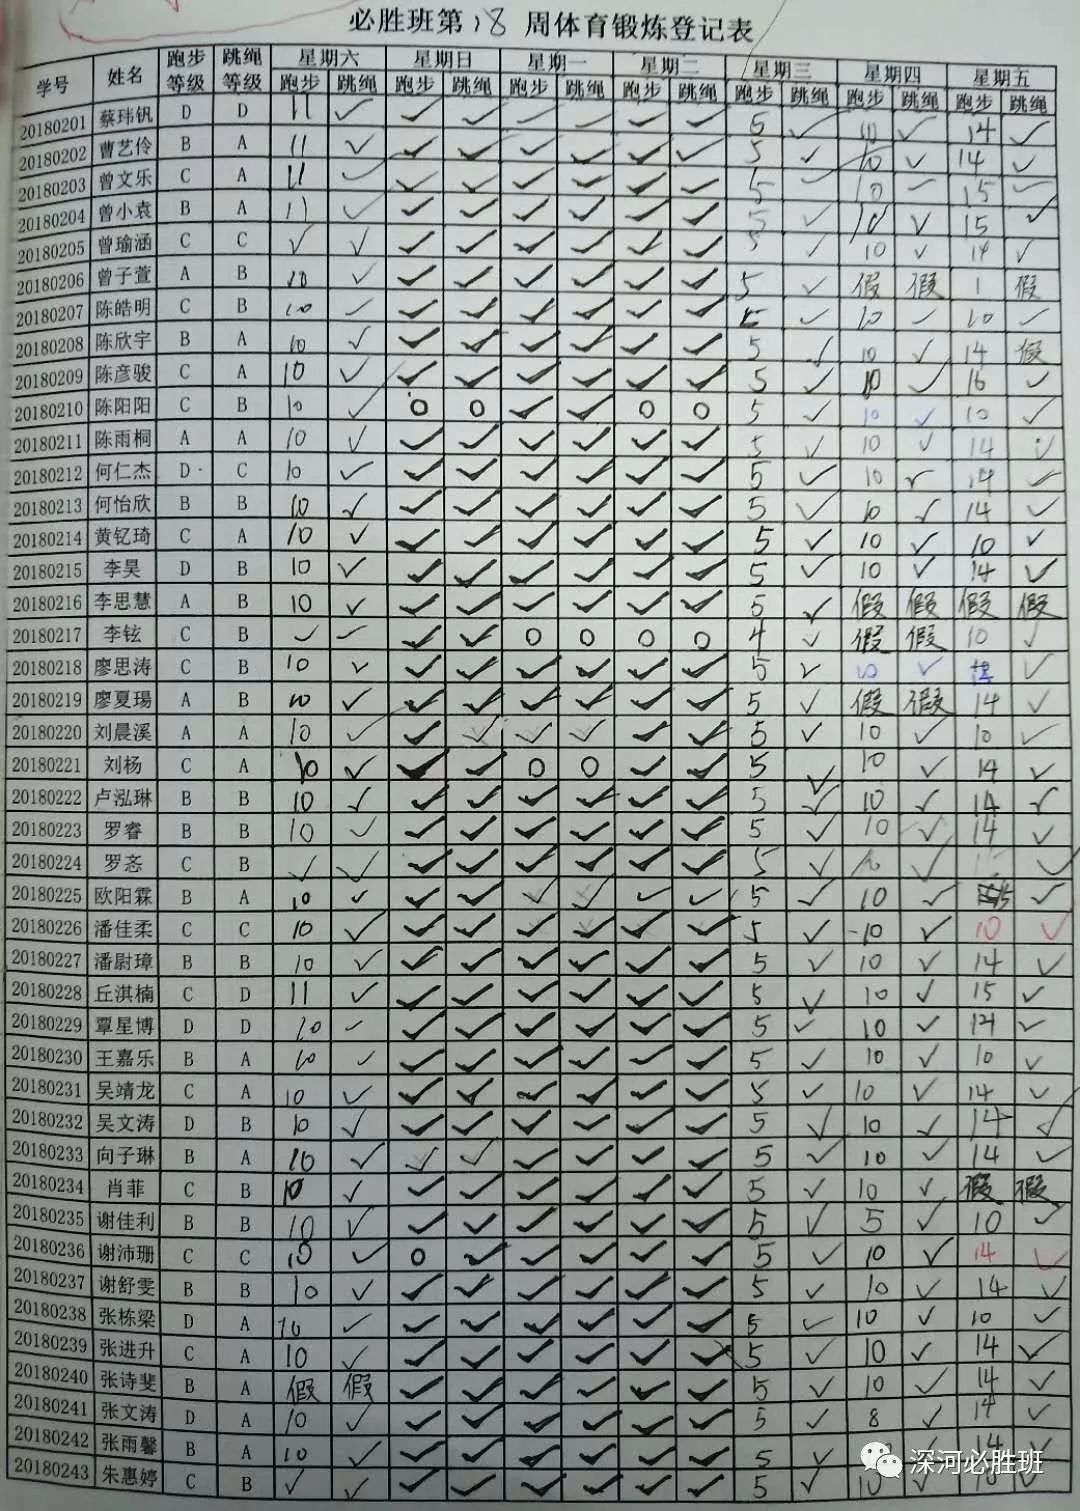 必胜班第18周体育锻炼登记表
学号 姓名 跑步等级 跳绳等级 星期六 星期日 星期一 星期二 星期三 星期四 星期五
跑步 跳绳 跑步 跳绳 跑步 跳绳 跑步 跳绳 跑步 跳绳 跑步 跳绳 跑步 跳绳
20180201 蔡玮钒 D D 11 ✓ ✓ ✓ ✓ ✓ ✓ ✓ 5 ✓ 10 ✓ 14 ✓
20180202 曹艺伶 B A 11 ✓ ✓ ✓ ✓ ✓ ✓ ✓ 5 ✓ 10 ✓ 14 ✓
20180203 曾文乐 C A 11 ✓ ✓ ✓ ✓ ✓ ✓ ✓ 5 ✓ 10 ✓ 15 ✓
20180204 曾小袁 B A 11 ✓ ✓ ✓ ✓ ✓ ✓ ✓ 5 ✓ 10 ✓ 15 ✓
20180205 曾瑜涵 C C ✓ ✓ ✓ ✓ ✓ ✓ ✓ ✓ 5 ✓ 10 ✓ 14 ✓
20180206 曾子萱 A B 10 ✓ ✓ ✓ ✓ ✓ ✓ ✓ 5 ✓ 假 假 1 假
20180207 陈皓明 C B 10 ✓ ✓ ✓ ✓ ✓ ✓ ✓ 5 ✓ 10 ✓ 10 ✓
20180208 陈欣宇 B A 10 ✓ ✓ ✓ ✓ ✓ ✓ ✓ 5 ✓ 10 ✓ 14 假
20180209 陈彦骏 C A 10 ✓ ✓ ✓ ✓ ✓ ✓ ✓ 5 ✓ 10 ✓ 16 ✓
20180210 陈阳阳 C B 10 ✓ O O ✓ ✓ O O 5 ✓ 10 ✓ 10 ✓
20180211 陈雨桐 A A 10 ✓ ✓ ✓ ✓ ✓ ✓ ✓ 5 ✓ 10 ✓ 14 ✓
20180212 何仁杰 D C 10 ✓ ✓ ✓ ✓ ✓ ✓ ✓ 5 ✓ 10 ✓ 14 ✓
20180213 何怡欣 B B 10 ✓ ✓ ✓ ✓ ✓ ✓ ✓ 5 ✓ 10 ✓ 14 ✓
20180214 黄钇琦 C A 10 ✓ ✓ ✓ ✓ ✓ ✓ ✓ 5 ✓ 10 ✓ 10 ✓
20180215 李昊 D B 10 ✓ ✓ ✓ ✓ ✓ ✓ ✓ 5 ✓ 10 ✓ 14 ✓
20180216 李思慧 A B 10 ✓ ✓ ✓ ✓ ✓ ✓ ✓ 5 ✓ 假 假 假 假
20180217 李铉 C B ✓ ✓ ✓ ✓ O O O O 4 ✓ 假 假 10 ✓
20180218 廖思涛 C B 10 ✓ ✓ ✓ ✓ ✓ ✓ ✓ 5 ✓ 10 ✓ 14 ✓
20180219 廖夏瑒 A B 10 ✓ ✓ ✓ ✓ ✓ ✓ ✓ 5 ✓ 假 假 14 ✓
20180220 刘晨溪 A A 10 ✓ ✓ ✓ ✓ ✓ ✓ ✓ 5 ✓ 10 ✓ 10 ✓
20180221 刘杨 C A 10 ✓ ✓ ✓ O O ✓ ✓ 5 ✓ 10 ✓ 14 ✓
20180222 卢泓琳 B B 10 ✓ ✓ ✓ ✓ ✓ ✓ ✓ 5 ✓ 10 ✓ 14 ✓
20180223 罗睿 B B 10 ✓ ✓ ✓ ✓ ✓ ✓ ✓ 5 ✓ 10 ✓ 14 ✓
20180224 罗忞 C B ✓ ✓ ✓ ✓ ✓ ✓ ✓ ✓ 5 ✓ ✓ ✓
20180225 欧阳霖 B A 10 ✓ ✓ ✓ ✓ ✓ ✓ ✓ 5 ✓ 10 ✓ 15 ✓
20180226 潘佳柔 C C 10 ✓ ✓ ✓ ✓ ✓ ✓ ✓ 5 ✓ 10 ✓ 10 ✓
20180227 潘尉璋 B B 10 ✓ ✓ ✓ ✓ ✓ ✓ ✓ 5 ✓ 10 ✓ 14 ✓
20180228 丘淇楠 C D 11 ✓ ✓ ✓ ✓ ✓ ✓ ✓ 5 ✓ 10 ✓ 15 ✓
20180229 覃星博 D D 10 ✓ ✓ ✓ ✓ ✓ ✓ ✓ 5 ✓ 10 ✓ ✓
20180230 王嘉乐 B A 10 ✓ ✓ ✓ ✓ ✓ ✓ ✓ 5 ✓ 10 ✓ 10 ✓
20180231 吴靖龙 C A 10 ✓ ✓ ✓ ✓ ✓ ✓ ✓ 5 ✓ 10 ✓ 14 ✓
20180232 吴文涛 D B 10 ✓ ✓ ✓ ✓ ✓ ✓ ✓ 5 ✓ 10 ✓ 14 ✓
20180233 向子琳 B A 10 ✓ ✓ ✓ ✓ ✓ ✓ ✓ 5 ✓ 10 ✓ 14 ✓
20180234 肖菲 C B 10 ✓ ✓ ✓ ✓ ✓ ✓ ✓ 5 ✓ 10 ✓ 假 假
20180235 谢佳利 B B 10 ✓ ✓ ✓ ✓ ✓ ✓ ✓ 5 ✓ 5 ✓ 10 ✓
20180236 谢沛珊 C C 10 ✓ O ✓ ✓ ✓ ✓ ✓ 5 ✓ 10 ✓ 14 ✓
20180237 谢舒雯 B B 10 ✓ ✓ ✓ ✓ ✓ ✓ ✓ 5 ✓ 10 ✓ 14 ✓
20180238 张栋梁 D A 10 ✓ ✓ ✓ ✓ ✓ ✓ ✓ 5 ✓ 10 ✓ 10 ✓
20180239 张进升 C A 10 ✓ ✓ ✓ ✓ ✓ ✓ ✓ 5 ✓ 10 ✓ 14 ✓
20180240 张诗斐 B A 假 假 ✓ ✓ ✓ ✓ ✓ ✓ 5 ✓ 10 ✓ 14 ✓
20180241 张文涛 D A 10 ✓ ✓ ✓ ✓ ✓ ✓ ✓ 5 ✓ 8 ✓ 14 ✓
20180242 张雨馨 B A 10 ✓ ✓ ✓ ✓ ✓ ✓ ✓ 5 ✓ ✓ 14 ✓
20180243 朱惠婷 C B ✓ ✓ ✓ ✓ ✓ ✓ ✓ ✓ 5 ✓ 10 ✓ 10 ✓
深河必胜班